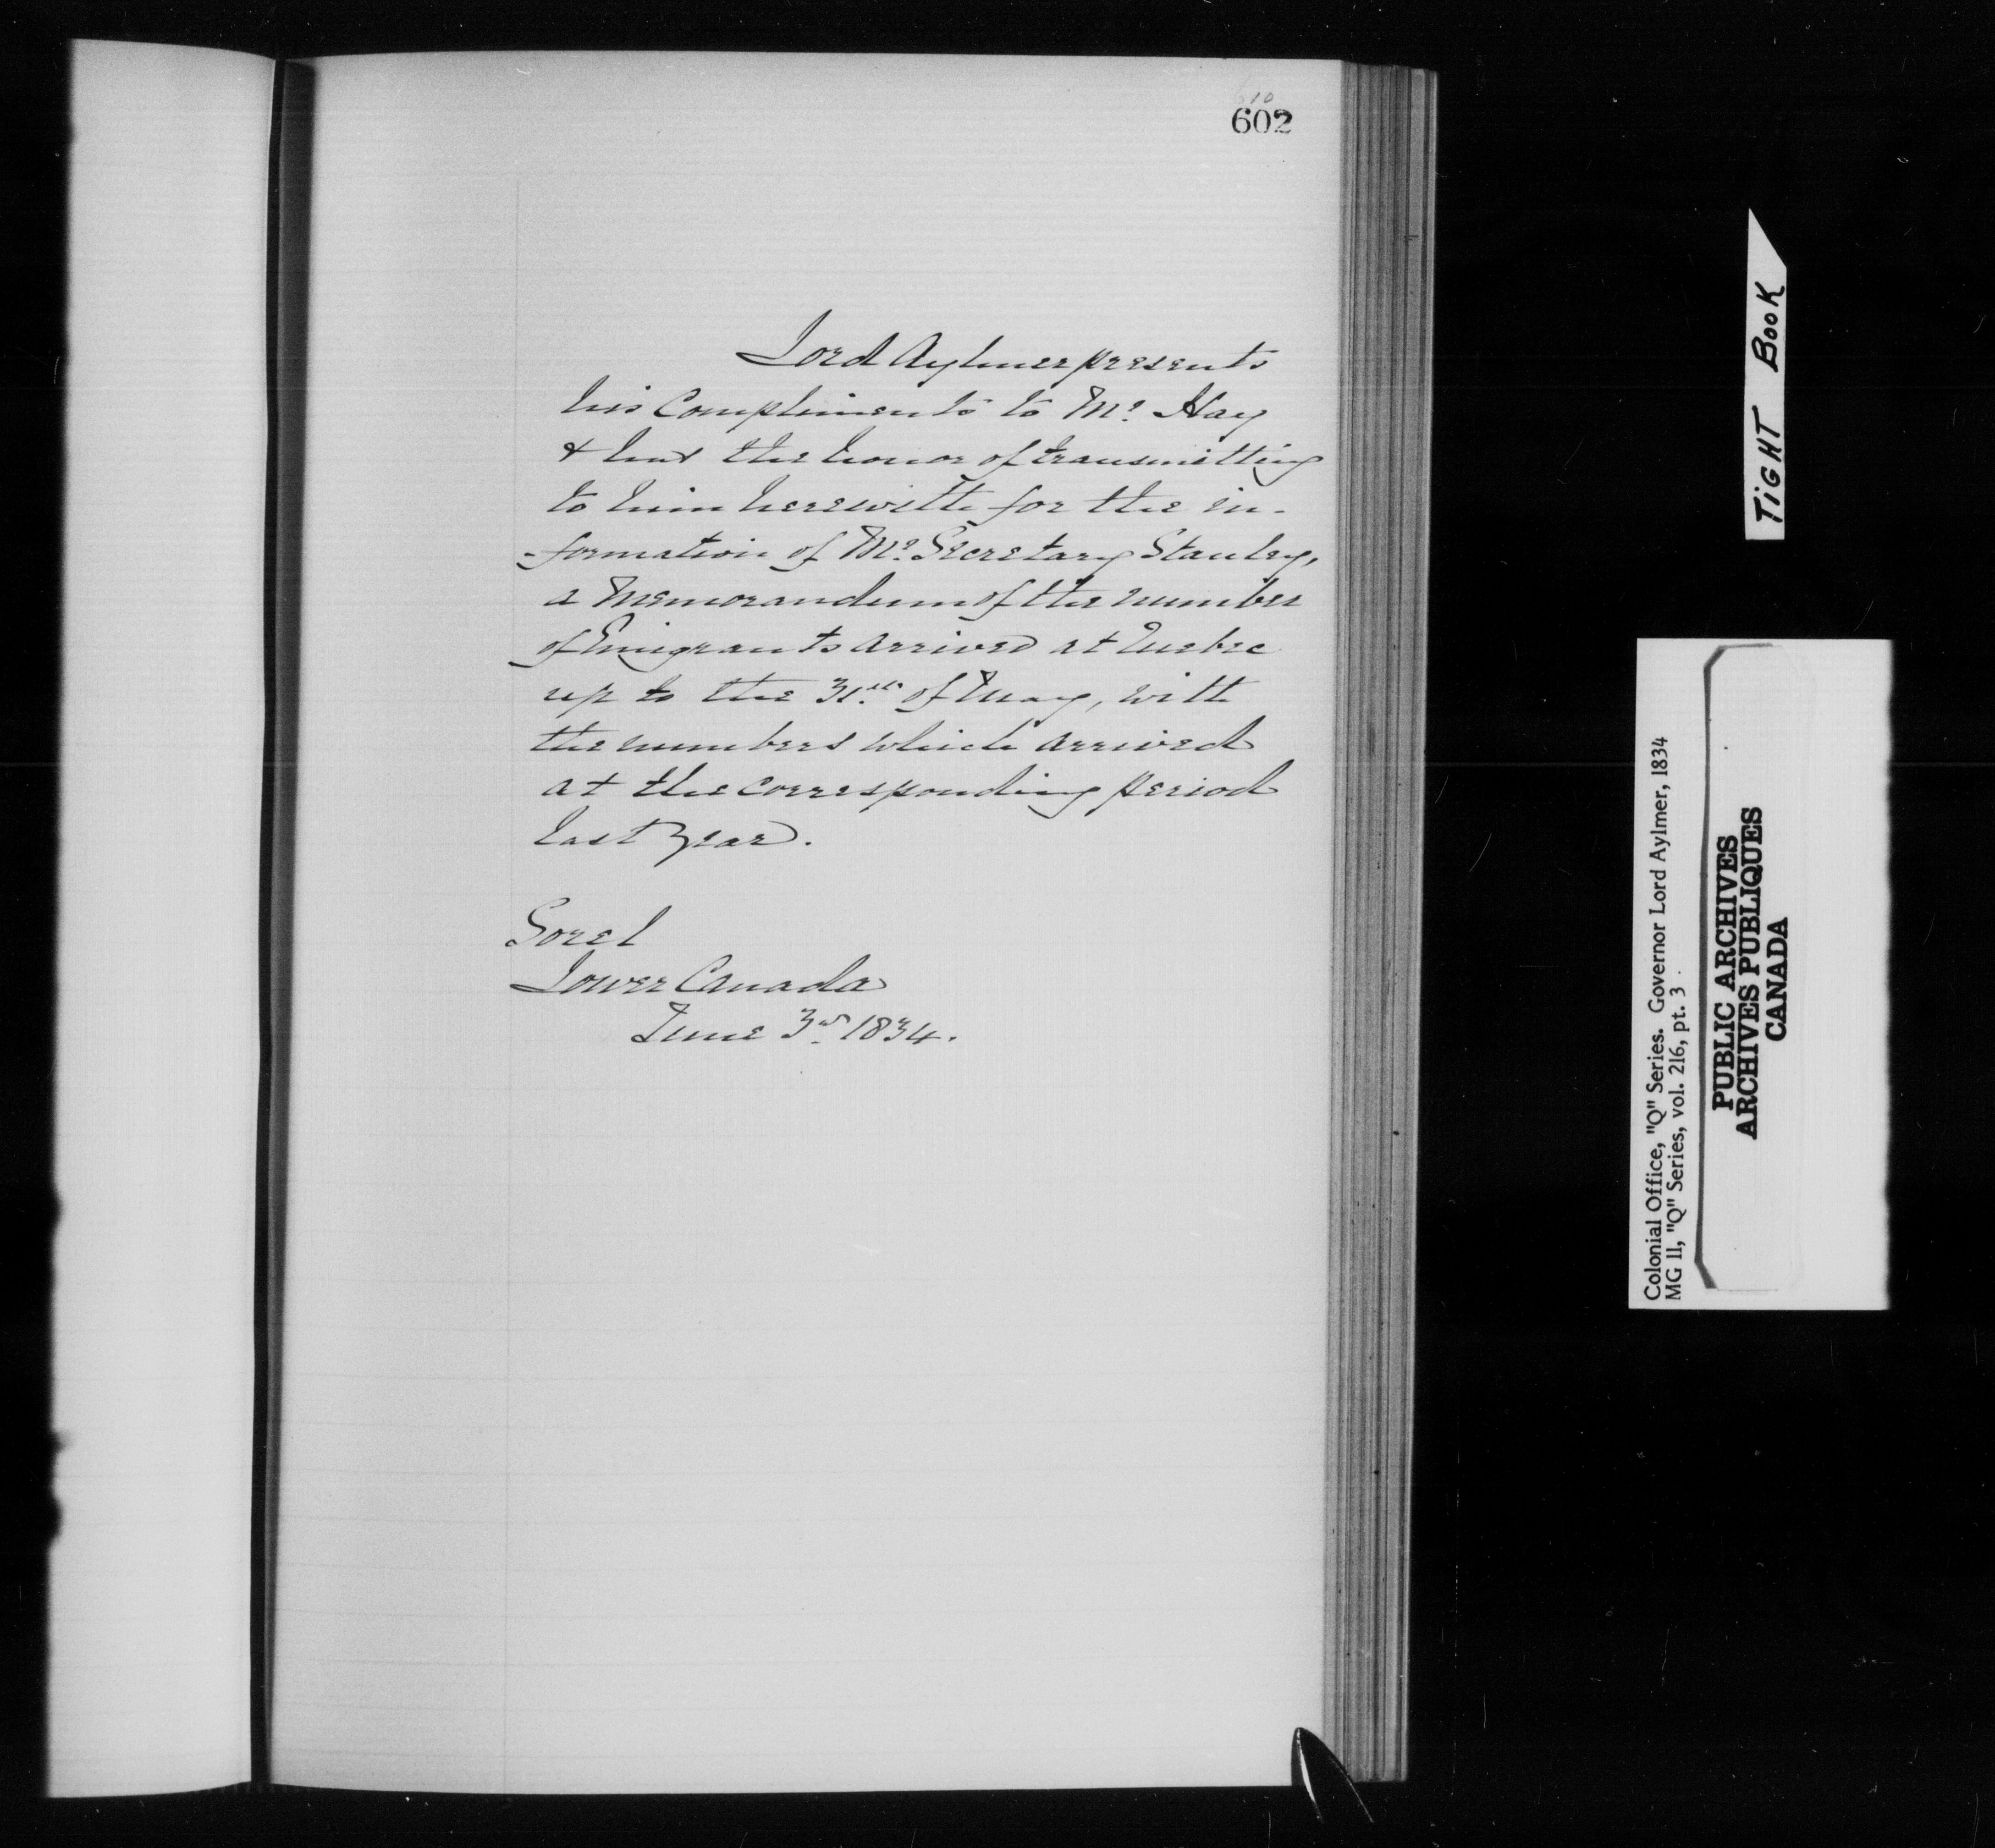 602
Lord Aylmer presents
his Compliments to Mr. Hay
& has the honor of transmitting
to him herewith for the in-
-formation of Mr. Secretary Stanley,
a Memorandum of the number
of Emigrants arrived at Quebec
up to the 31st. of May, with
the numbers which arrived
at the corresponding period
last year.
Sorel
Lower Canada
June 3rd. 1834.
TIGHT BOOK
Colonial Office, "Q" Series. Governor Lord Aylmer, 1834
MG 11, "Q" Series, vol. 216, pt. 3
PUBLIC ARCHIVES
ARCHIVES PUBLIQUES
CANADA